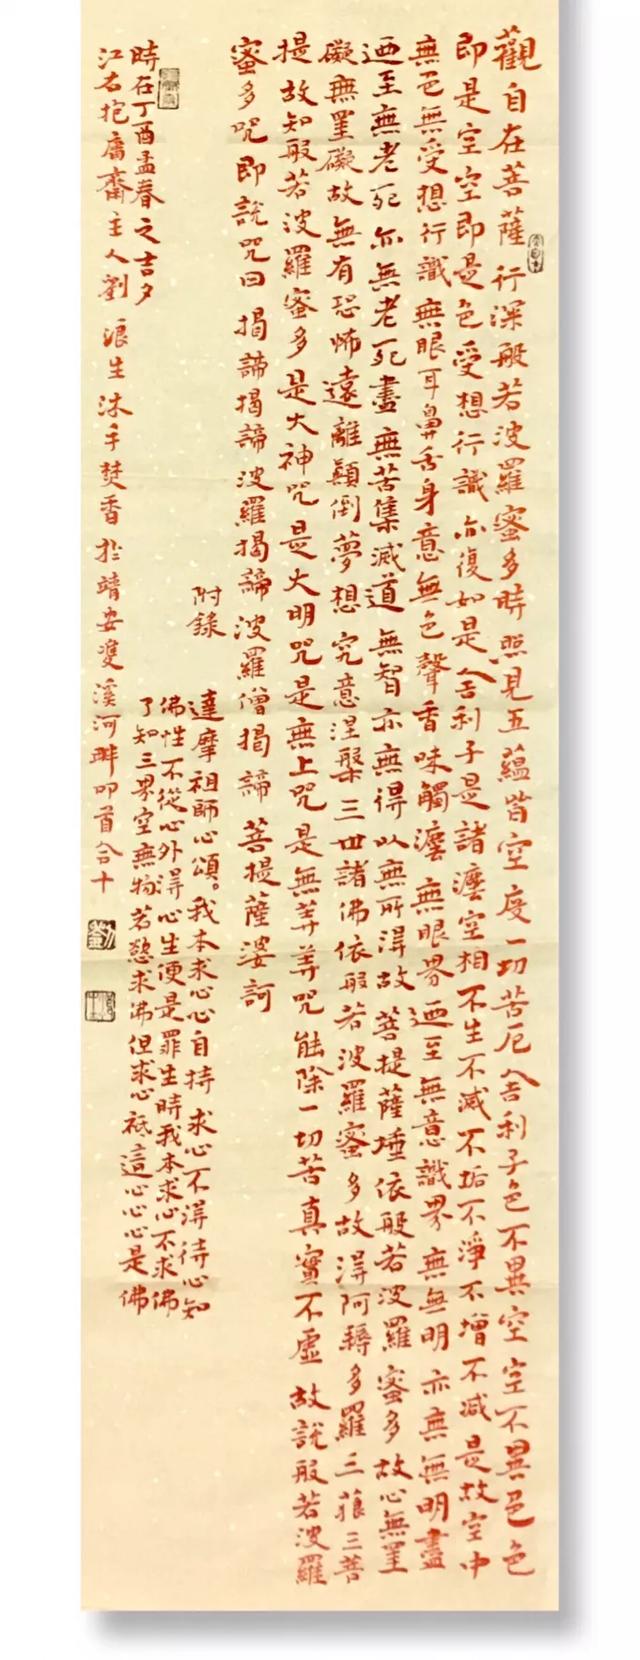 觀自在菩薩行深般若波羅蜜多時照見五蘊皆空度一切苦厄舍利子色不異空空不異色色
即是空空即是色受想行識亦復如是舍利子是諸灋空相不生不滅不垢不淨不增不減是故空中
無色無受想行識無眼耳鼻舌身意無色聲香味觸灋無眼界迺至無意識界無無明亦無無明盡
迺至無老死亦無老死盡無苦集滅道無智亦無得以無所得故菩提薩埵依般若波羅蜜多故心無罣
礙無罣礙故無有恐怖遠離顛倒夢想究竟涅槃三世諸佛依般若波羅蜜多故得阿耨多羅三藐三菩
提故知般若波羅蜜多是大神咒是大明咒是無上咒是無等等咒能除一切苦真實不虛故說般若波羅
蜜多咒即說咒曰揭諦揭諦波羅揭諦波羅僧揭諦菩提薩婆訶
附錄
達摩祖師心頌。我本求心心自持求心不得待心知
佛性不從心外得心生便是罪生時我本求心不求佛
了知三界空無物若慾求佛但求心祗這心心心是佛
時在丁酉孟春之吉夕
江右抱庸齋主人劉浪生沐手焚香於靖安雙溪河畔叩首合十